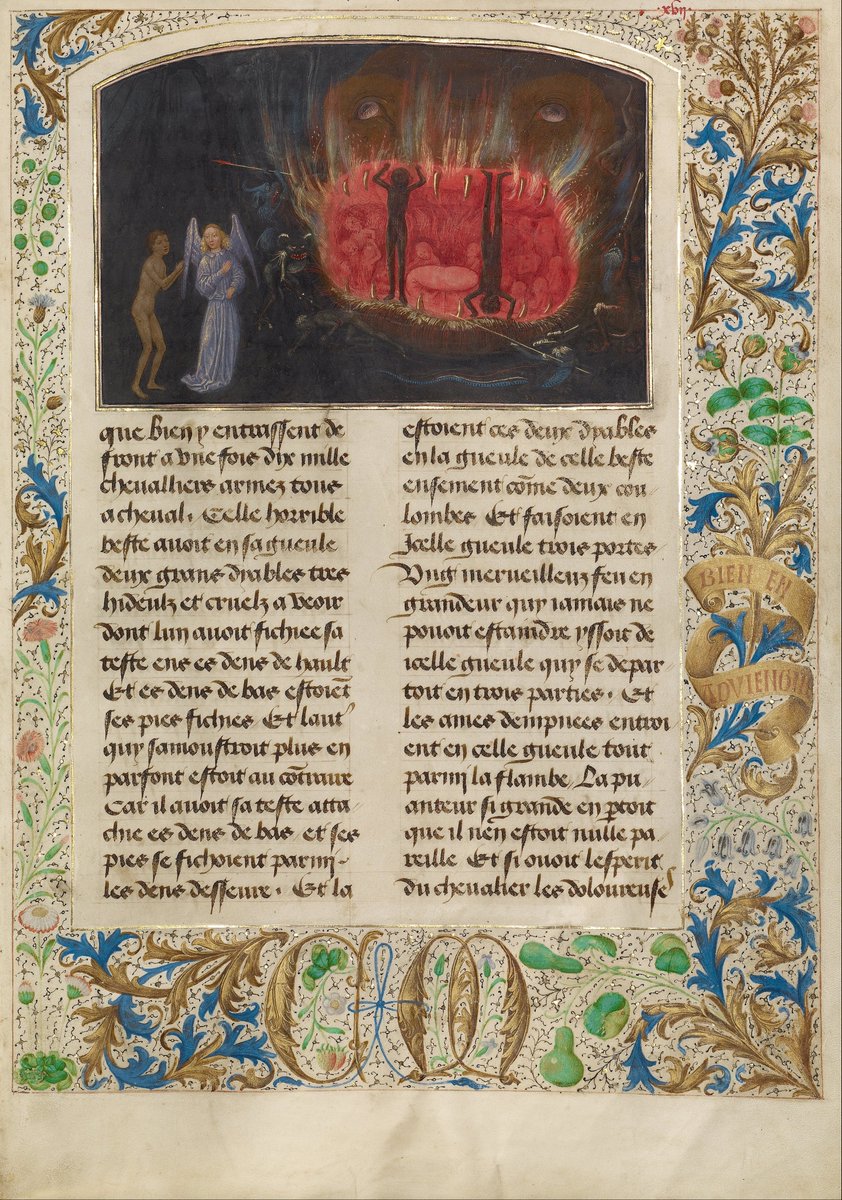 .xvij.
que bien y entrassent de
front a vne fois dix mille
chevalliers armez tous
a cheval. Celle horrible
beste avoit en sa gueule
deux grans dyables tres
hideulz et cruelz a veoir
dont lun avoit fichiee sa
teste ens es dens de hault
Et es dens de bas estoiēt
ses pies fichies. Et laut'
quy samoustroit plus en
parfont estoit au cōtraire
Car il avoit sa teste atta
chie es dens de bas. et ses
pies se fichoient parmi
les dens desseure. Et la
estoient ces deux dyables
en la gueule de celle beste
ensement cōme deux cou
lombes Et faisoient en
Icelle gueule trois portes
Vng merveilleux feu en
grandeur quy iamais ne
povoit estaindre yssoit de
icelle gueule quy se depar
toit en trois parties. Et
les ames dempnees entroi
ent en celle gueule tout
parmi la flambe. La pu
anteur si grande en ꝑtoit
que il nen estoit nulle pa
reille Et si ouoit lesperit
du chevalier les doloureuses
BIEN EN
ADVIENGNE